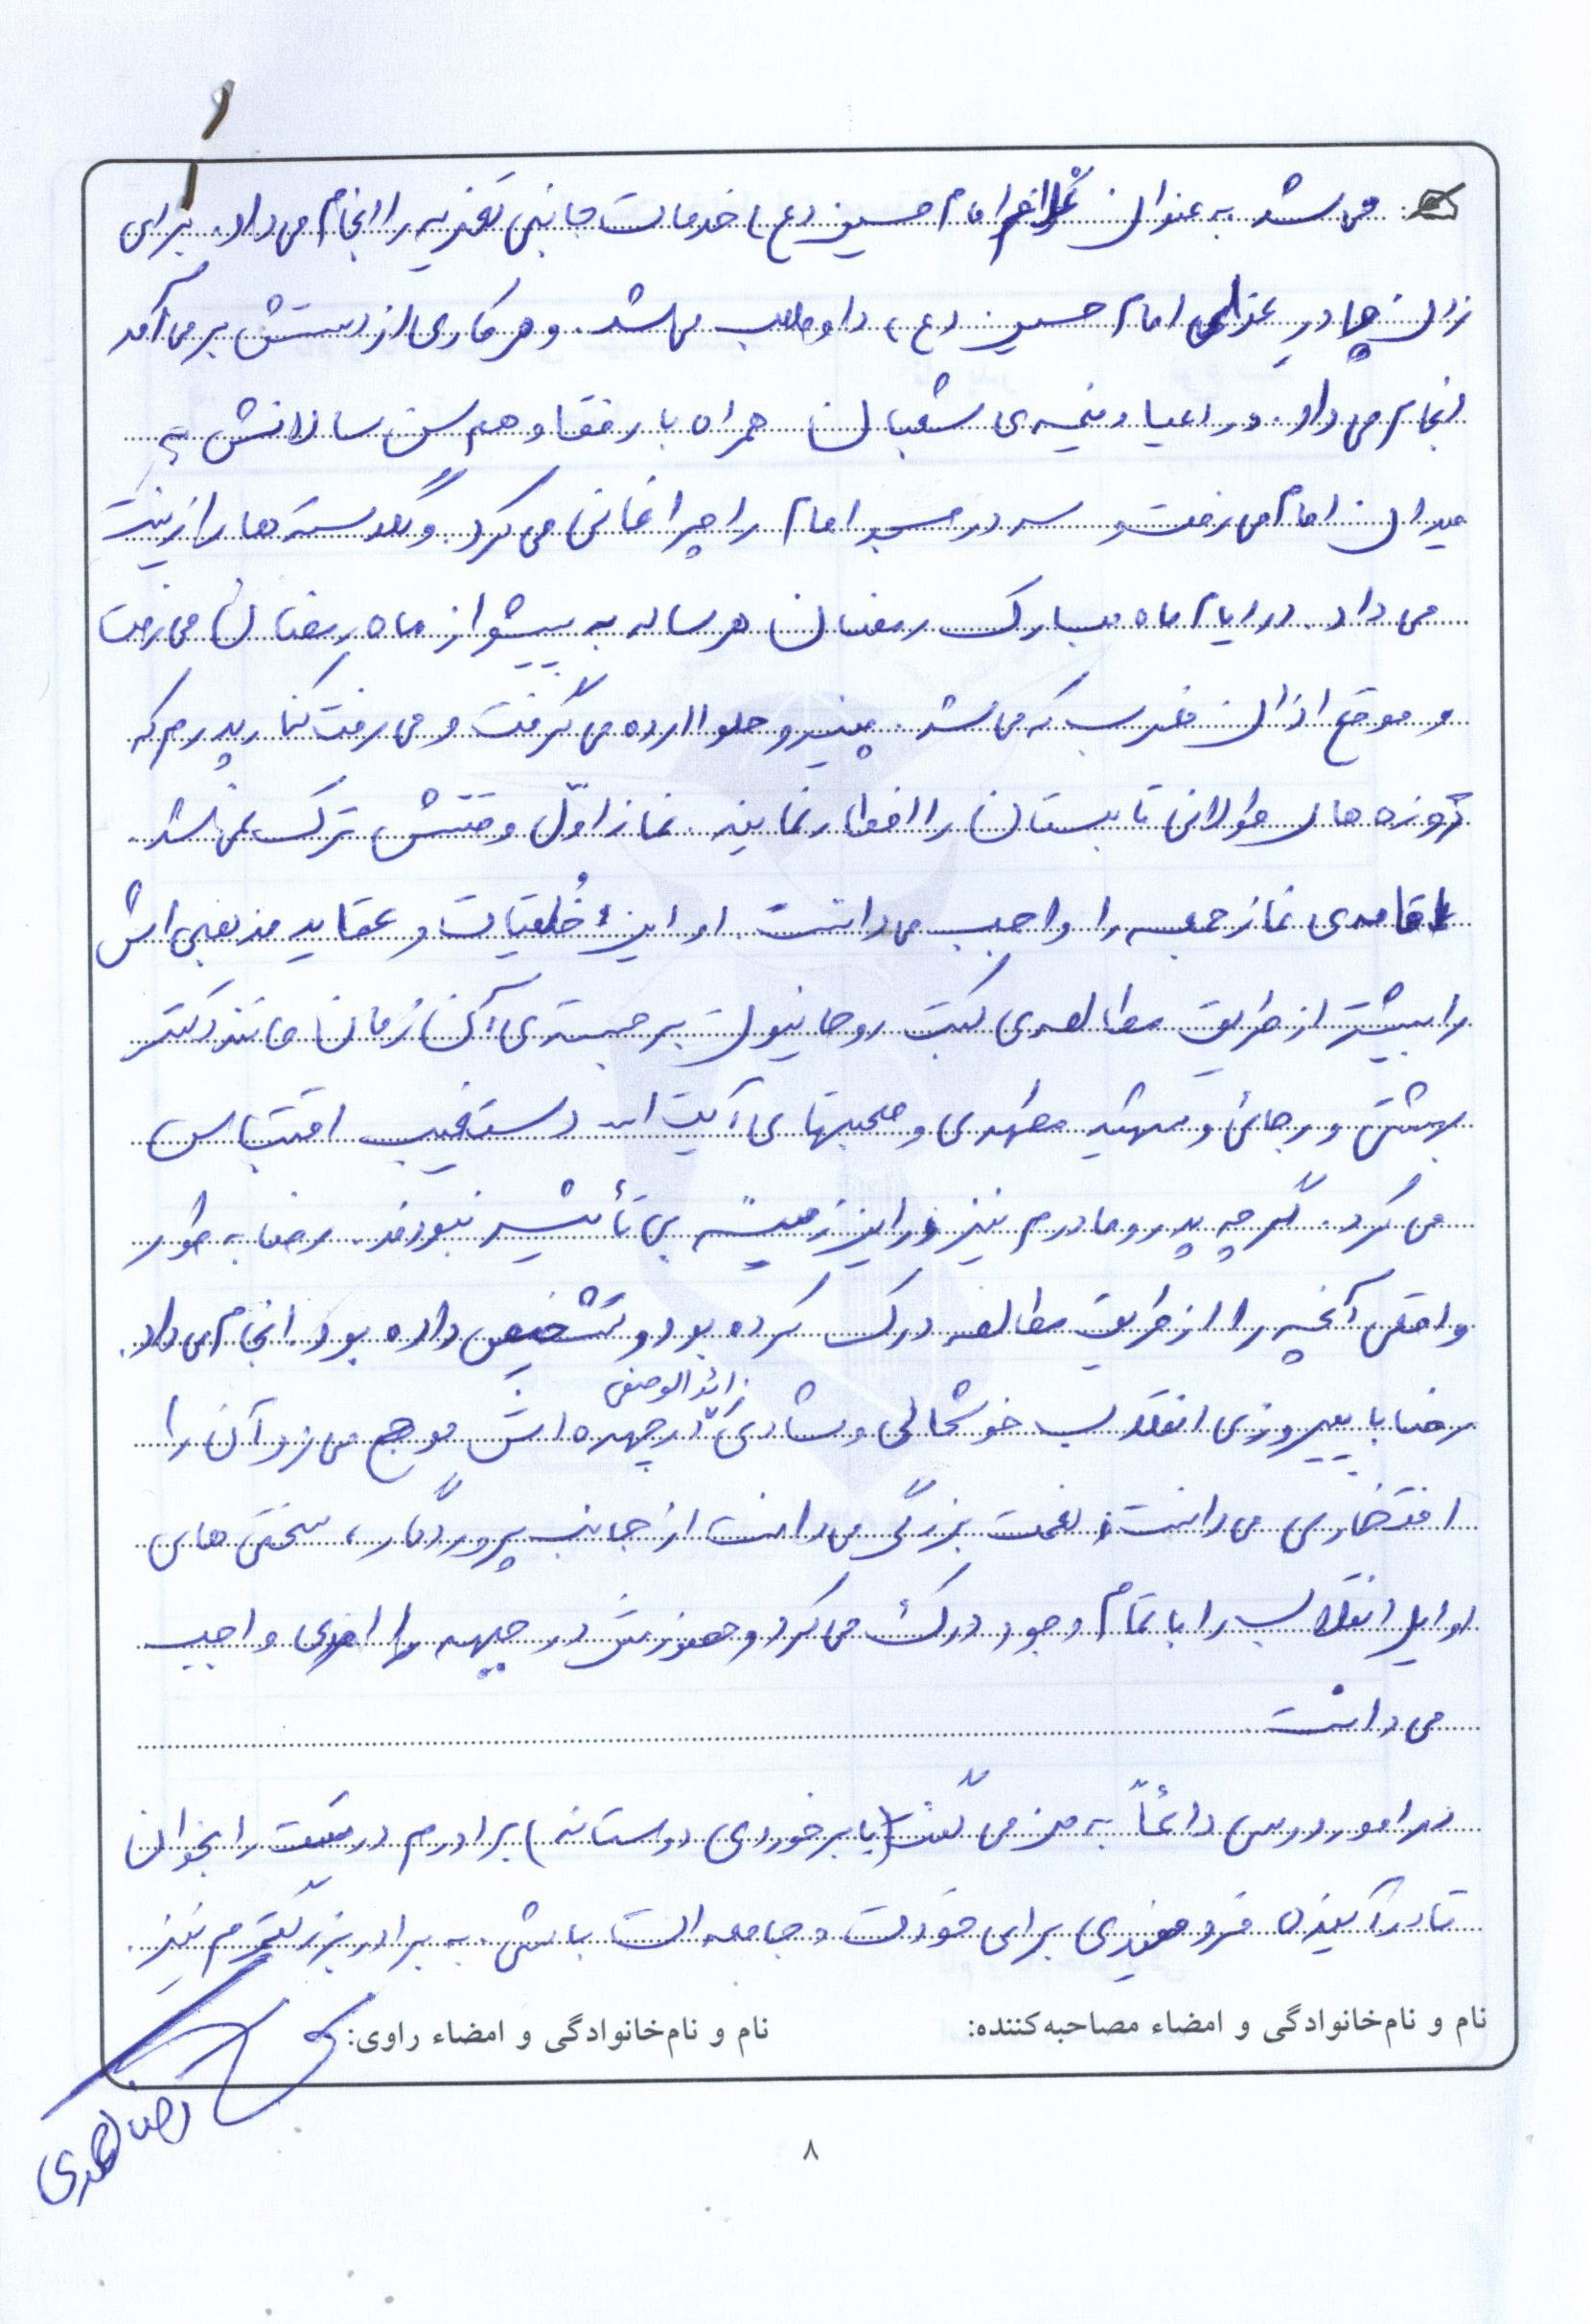 می شد به عنوان غلام امام حسین (ع) خدمات جانبی تعزیه را انجام می داد. برای
زدن چادر عزای امام حسین (ع) داوطلب می شد. و هر کاری از دستش بر می آمد
انجام می داد. در اعیاد نیمه ی شعبان همراه با رفقا و هم سن سالانش به
میدان امام می رفت و سر در مسجد امام را چراغانی می کرد. و گلدسته ها را زینت
می داد. در ایام ماه مبارک رمضان هر ساله به پیشواز ماه رمضان می رفت
و موقع اذان مغرب که می شد. پنیر و حلوا ارده می گرفت و می رفت کنار پدرم که
روزه های طولانی تابستان را افطار نمایند. نماز اوّل وقتش ترک نمی شد.
اقامه ی نماز جمعه را واجب می دانست. او این خُلقیات و عقاید مذهبی اش
را بیشتر از طریق مطالعه ی کتب روحانیون برجسته ی آن زمان مانند دکتر
بهشتی و رجائی و شهید مطهری و صحبتهای آیت الله دستغیب اقتباس
می کرد. گرچه پدر و مادرم نیز در این زمینه بی تأثیر نبودند. رضا به طور
واقعی آنچه را از طریق مطالعه درک کرده بود و تشخیص داده بود. انجام می داد.
رضا با پیروزی انقلاب خوشحالی و شادی زائد الوصفی در چهره اش موج می زد و آن را
افتخاری می دانست و نعمت بزرگی می دانست از جانب پروردگار، سختی های
اوایل انقلاب را با تمام وجود درک می کرد و حضورش در جبهه را امری واجب
می دانست
در امور درس دائماً به من می گفت (با برخوردی دوستانه) برادرم درست را بخوان
تا در آینده فرد مفیدی برای خودت و جامعه ات باشی. به برادر بزرگترم نیز
نام و نام‌خانوادگی و امضاء مصاحبه‌کننده:
نام و نام‌خانوادگی و امضاء راوی:
۸